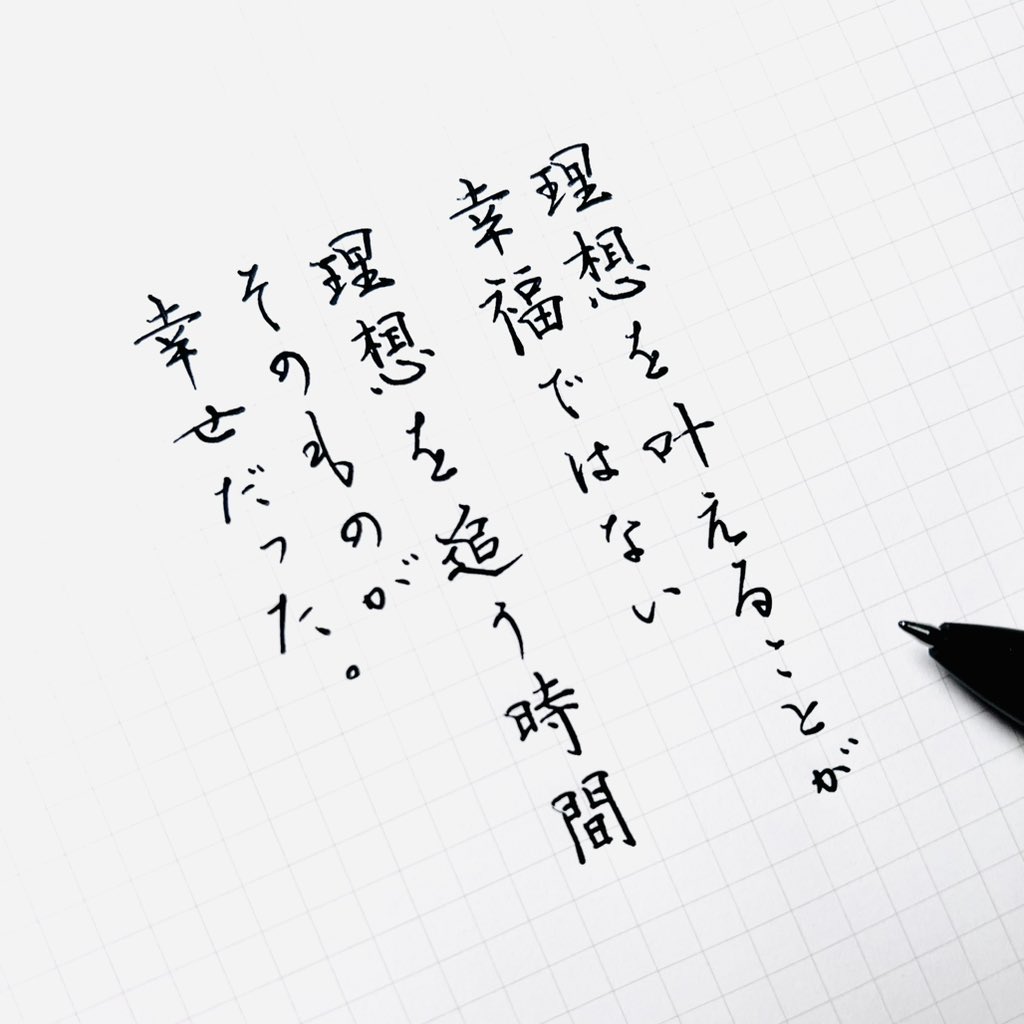 理想を叶えることが
幸福ではない
理想を追う時間
そのものが
幸せだった。